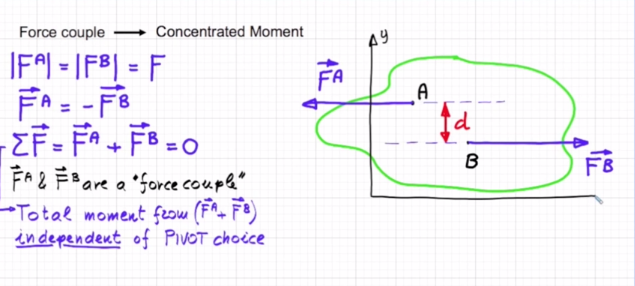 Force couple → Concentrated Moment
|F^A| = |F^B| = F
F⃗^A = -F⃗^B
ΣF⃗ = F⃗^A + F⃗^B = 0
F⃗^A & F⃗^B are a "force couple"
→Total moment from (F⃗^A + F⃗^B)
independent of PIVOT choice
y
F⃗A
A
d
B
F⃗B